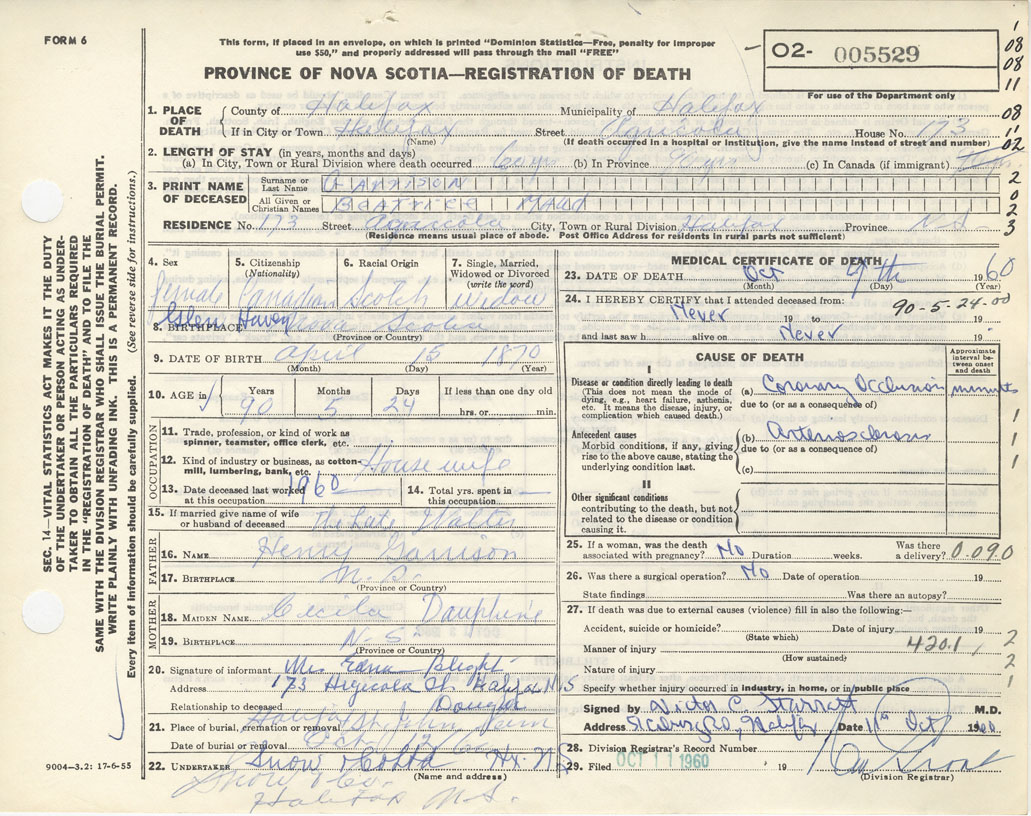 FORM 6
This form, if placed in an envelope, on which is printed "Dominion Statistics—Free, penalty for improper
use $50," and properly addressed will pass through the mail "FREE"
PROVINCE OF NOVA SCOTIA—REGISTRATION OF DEATH
02- 005529
For use of the Department only
1
08
08
11
08
11
02
2
0
2
3
1. PLACE OF DEATH
County of Halifax Municipality of Halifax
If in City or Town Halifax Street Agricola House No. 173
(Name) (If death occurred in a hospital or Institution, give the name instead of street and number)
2. LENGTH OF STAY (in years, months and days)
(a) In City, Town or Rural Division where death occurred 60 yrs (b) In Province 90 yrs (c) In Canada (if immigrant)
3. PRINT NAME OF DECEASED
Surname or Last Name GARRISON
All Given or Christian Names BEATRICE MAUD
RESIDENCE No. 173 Street Agricola City, Town or Rural Division Halifax Province N S
(Residence means usual place of abode. Post Office Address for residents in rural parts not sufficient)
4. Sex
Female
5. Citizenship
(Nationality)
Canadian
6. Racial Origin
Scotch
7. Single, Married,
Widowed or Divorced
(write the word)
widow
8. BIRTHPLACE Glen Haven Nova Scotia
(Province or Country)
9. DATE OF BIRTH April 15 1870
(Month) (Day) (Year)
10. AGE in
Years 90
Months 5
Days 24
If less than one day old
hrs. or min.
OCCUPATION
11. Trade, profession, or kind of work as
spinner, teamster, office clerk, etc.
12. Kind of industry or business, as cotton-
mill, lumbering, bank, etc. House wife
13. Date deceased last worked
at this occupation 1960
14. Total yrs. spent in
this occupation —
15. If married give name of wife
or husband of deceased The Late Walter
FATHER
16. NAME Henry Garrison
17. BIRTHPLACE N. S.
(Province or Country)
MOTHER
18. MAIDEN NAME Cecila Dauphine
19. BIRTHPLACE N-S
(Province or Country)
20. Signature of informant Mrs Edna Blight
Address 173 Agricola St. Halifax N.S
Relationship to deceased
21. Place of burial, cremation or removal Halifax St. John Cem
Date of burial or removal Oct 12/60
22. UNDERTAKER Snow & Co Ltd Hx. NS
(Name and address)
Snow & Co.
Halifax N.S.
9004—3.2: 17-6-55
SEC. 14—VITAL STATISTICS ACT MAKES IT THE DUTY
OF THE UNDERTAKER OR PERSON ACTING AS UNDER-
TAKER TO OBTAIN ALL THE PARTICULARS REQUIRED
IN THE "REGISTRATION OF DEATH" AND TO FILE THE
SAME WITH THE DIVISION REGISTRAR WHO SHALL ISSUE THE BURIAL PERMIT.
WRITE PLAINLY WITH UNFADING INK. THIS IS A PERMANENT RECORD.
Every item of information should be carefully supplied. (See reverse side for instructions.)
MEDICAL CERTIFICATE OF DEATH
23. DATE OF DEATH Oct 9th 1960
(Month) (Day) (Year)
24. I HEREBY CERTIFY that I attended deceased from: 90-5-24-00
Never 19 to 19
and last saw h alive on Never 19
CAUSE OF DEATH
Approximate
interval be-
tween onset
and death
I
Disease or condition directly leading to death
(This does not mean the mode of
dying, e.g., heart failure, asthenia,
etc. It means the disease, injury, or
complication which caused death.)
(a) Coronary Occlusion minutes
due to (or as a consequence of)
Antecedent causes
Morbid conditions, if any, giving
rise to the above cause, stating the
underlying condition last.
(b) Arteriosclerosis
due to (or as a consequence of)
(c)
II
Other significant conditions
contributing to the death, but not
related to the disease or condition
causing it.
1
1
1
25. If a woman, was the death
associated with pregnancy? No Duration weeks. Was there
a delivery? 0.090
26. Was there a surgical operation? No Date of operation 19
State findings Was there an autopsy?
27. If death was due to external causes (violence) fill in also the following:—
Accident, suicide or homicide? Date of injury 19
(State which)
Manner of injury 420.1
(How sustained)
Nature of injury
Specify whether injury occurred in industry, in home, or in public place
2
2
1
Signed by Victor C. Starratt M.D.
Address Halifax Date 11th Oct 1960
28. Division Registrar's Record Number
29. Filed OCT 11 1960 19
(Division Registrar)